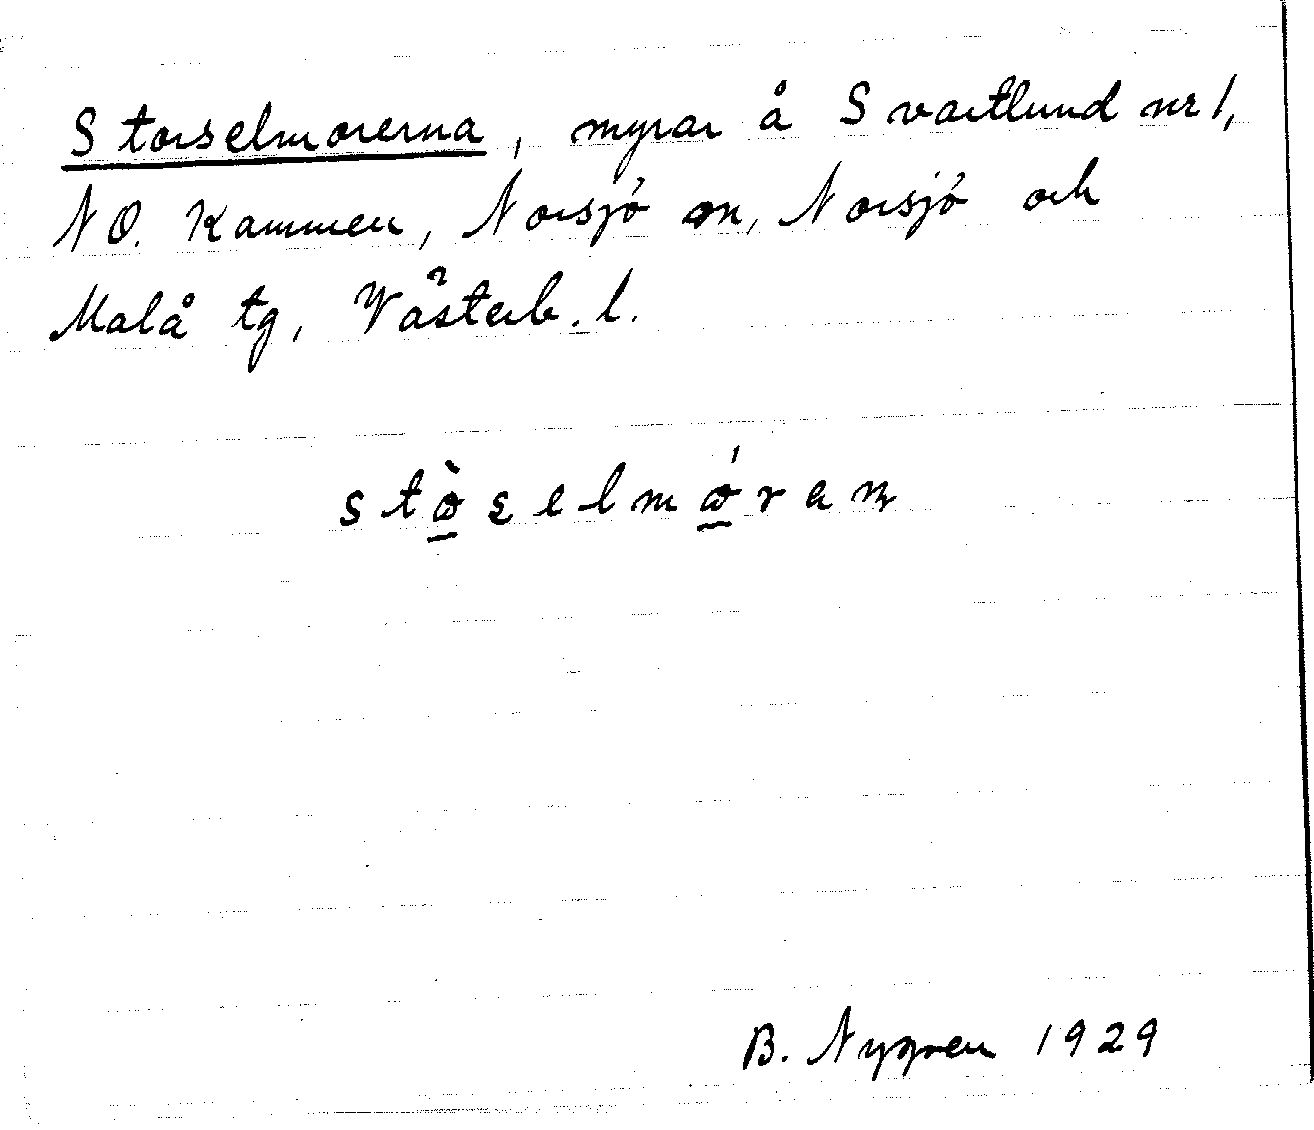 Storselmorerna, myrar å Svartlund nr 1,
NO. Kammen, Norsjö sn, Norsjö och
Malå tg, Västerb. l.
B. Nygren 1929